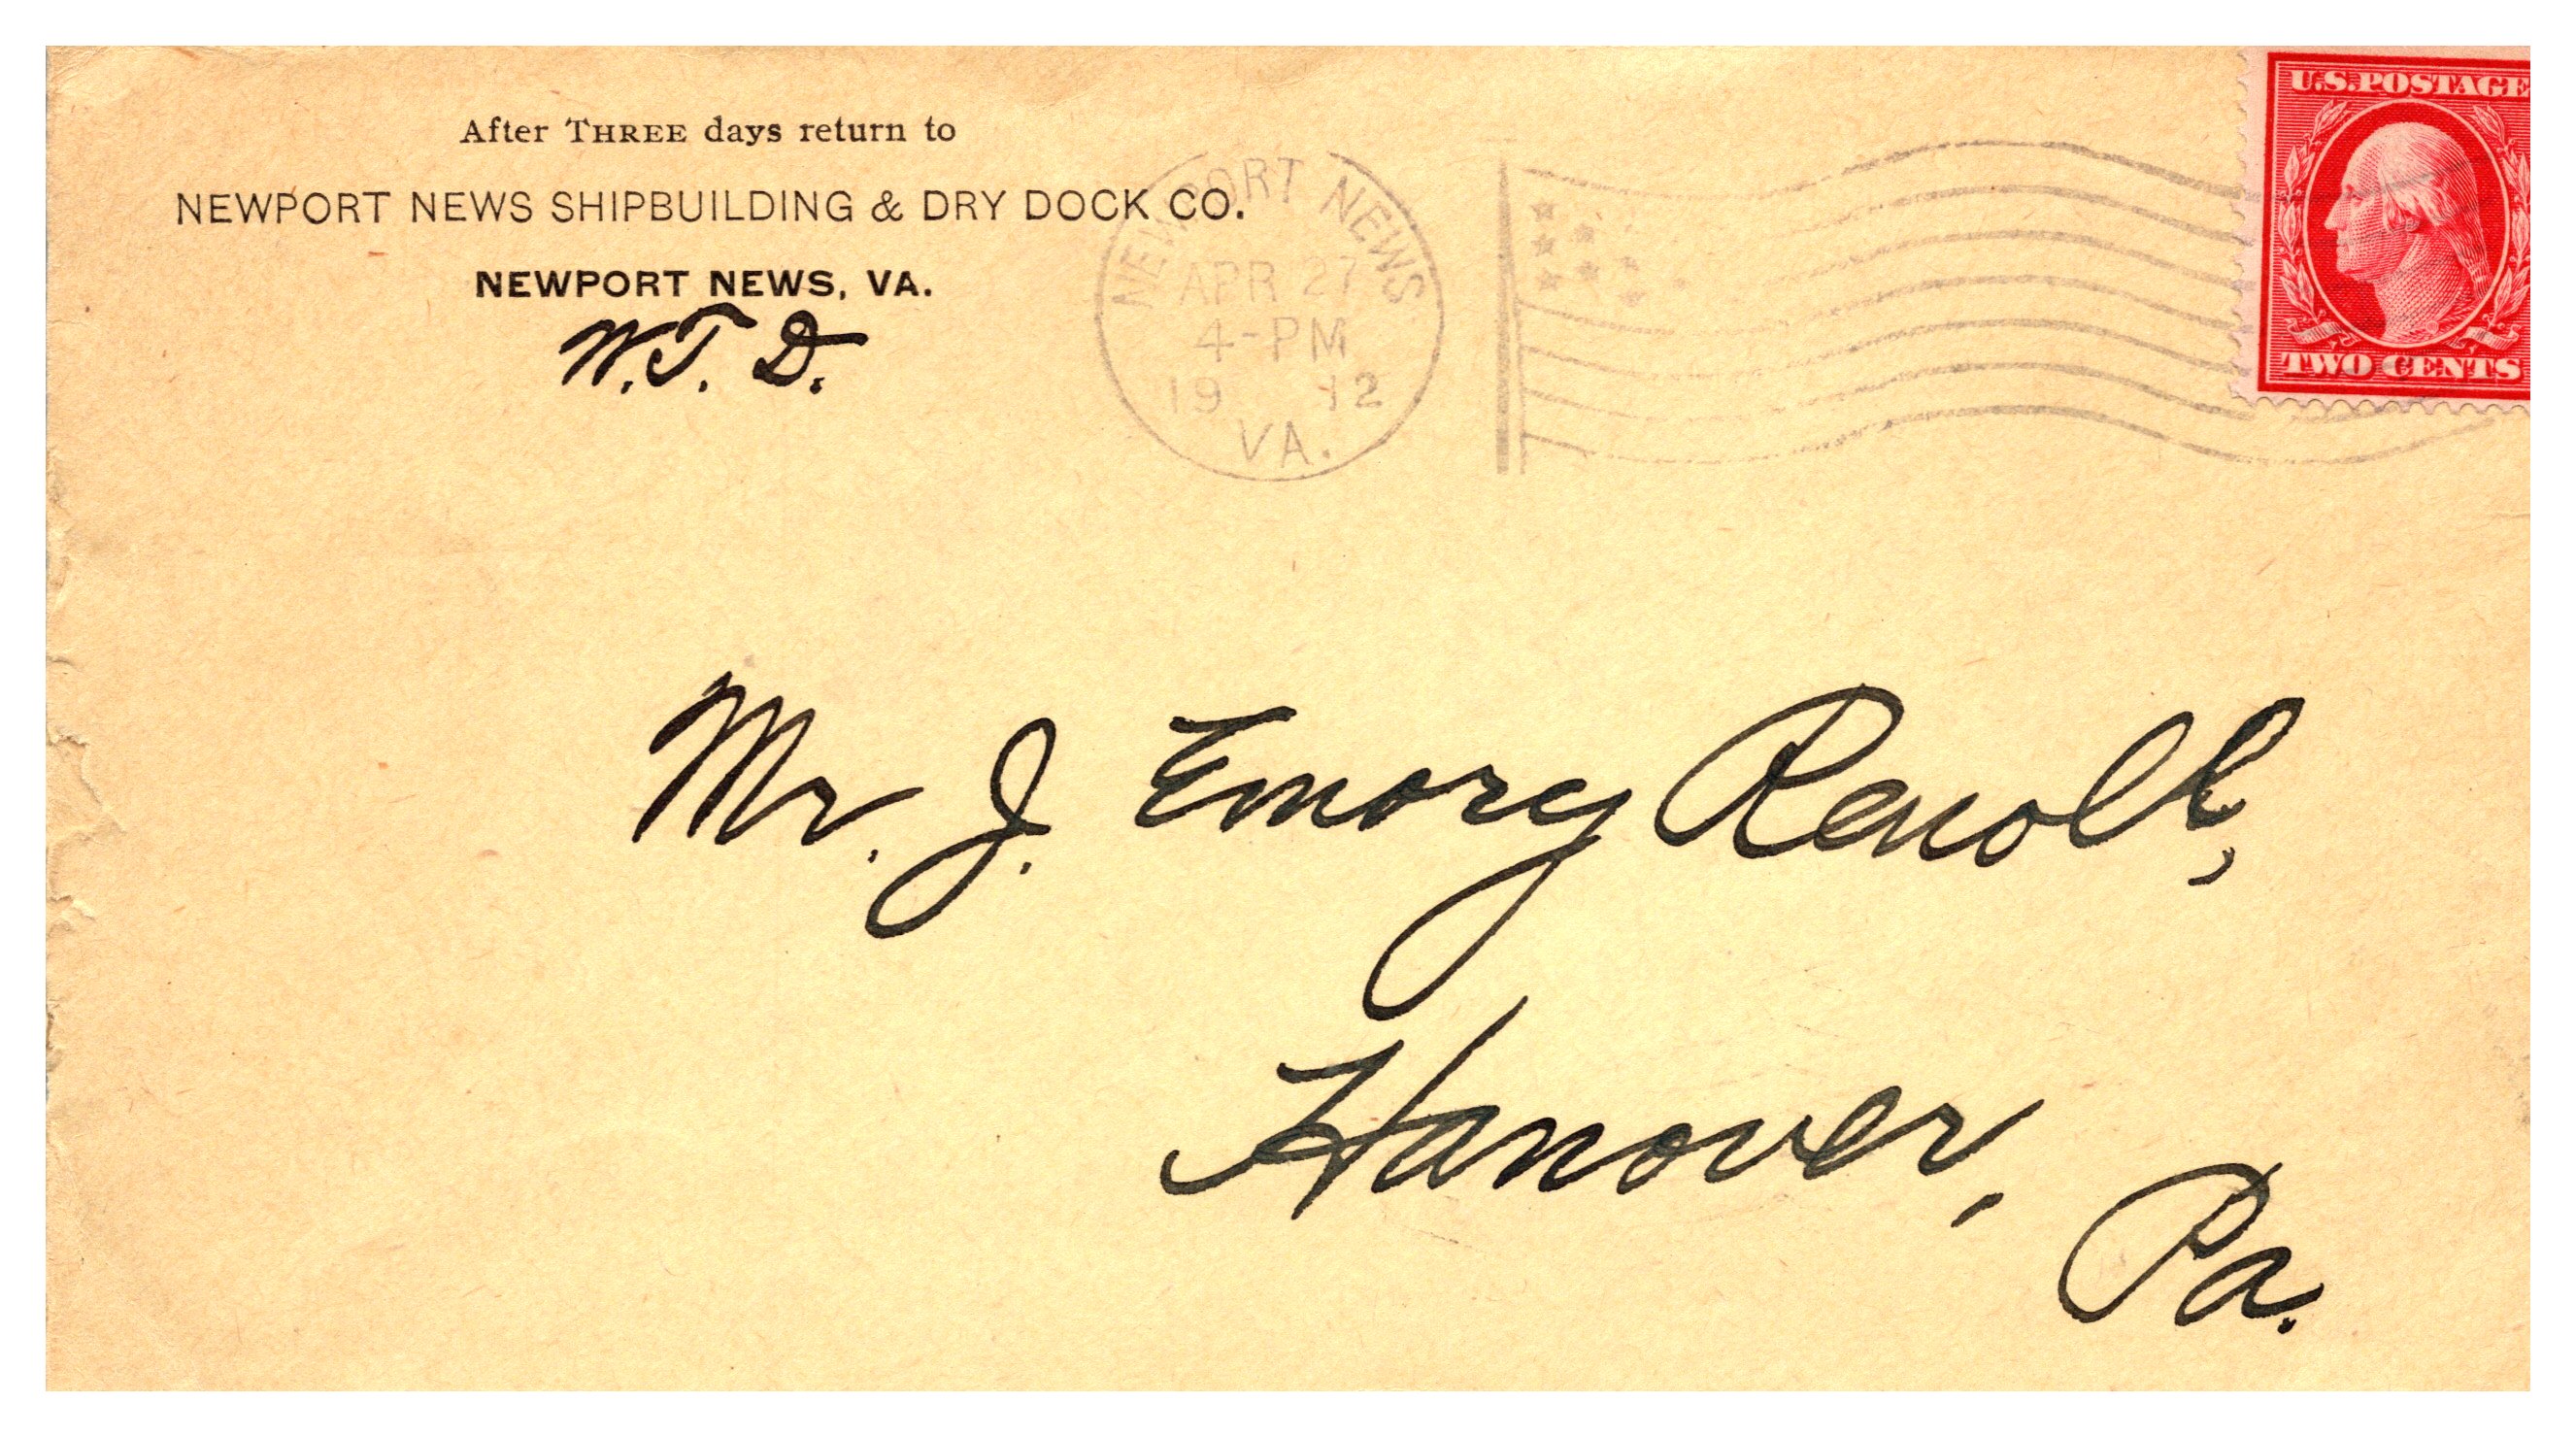 After THREE days return to
NEWPORT NEWS SHIPBUILDING & DRY DOCK CO.
NEWPORT NEWS, VA.
W.T. D.
NEWPORT NEWS
APR 27
4-PM
19 12
VA.
U.S. POSTAGE
TWO CENTS
Mr. J. Emory Renoll,
Hanover,
Pa.